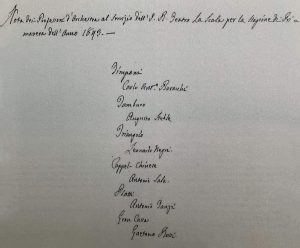 Nota dei Professori d'Orchestra al Servizio dell' I. R. Teatro La Scala per la Stagione di Pri-
mavera dell' Anno 1843. —
Timpani
Carlo Ant.º Boracchi
Tamburo
Augusto
Triangolo
Leonardo Negri
Cappel-Chinese
Antonio Sala
Piatti
Antonio Panzi
Gran Cassa
Gaetano Rossi